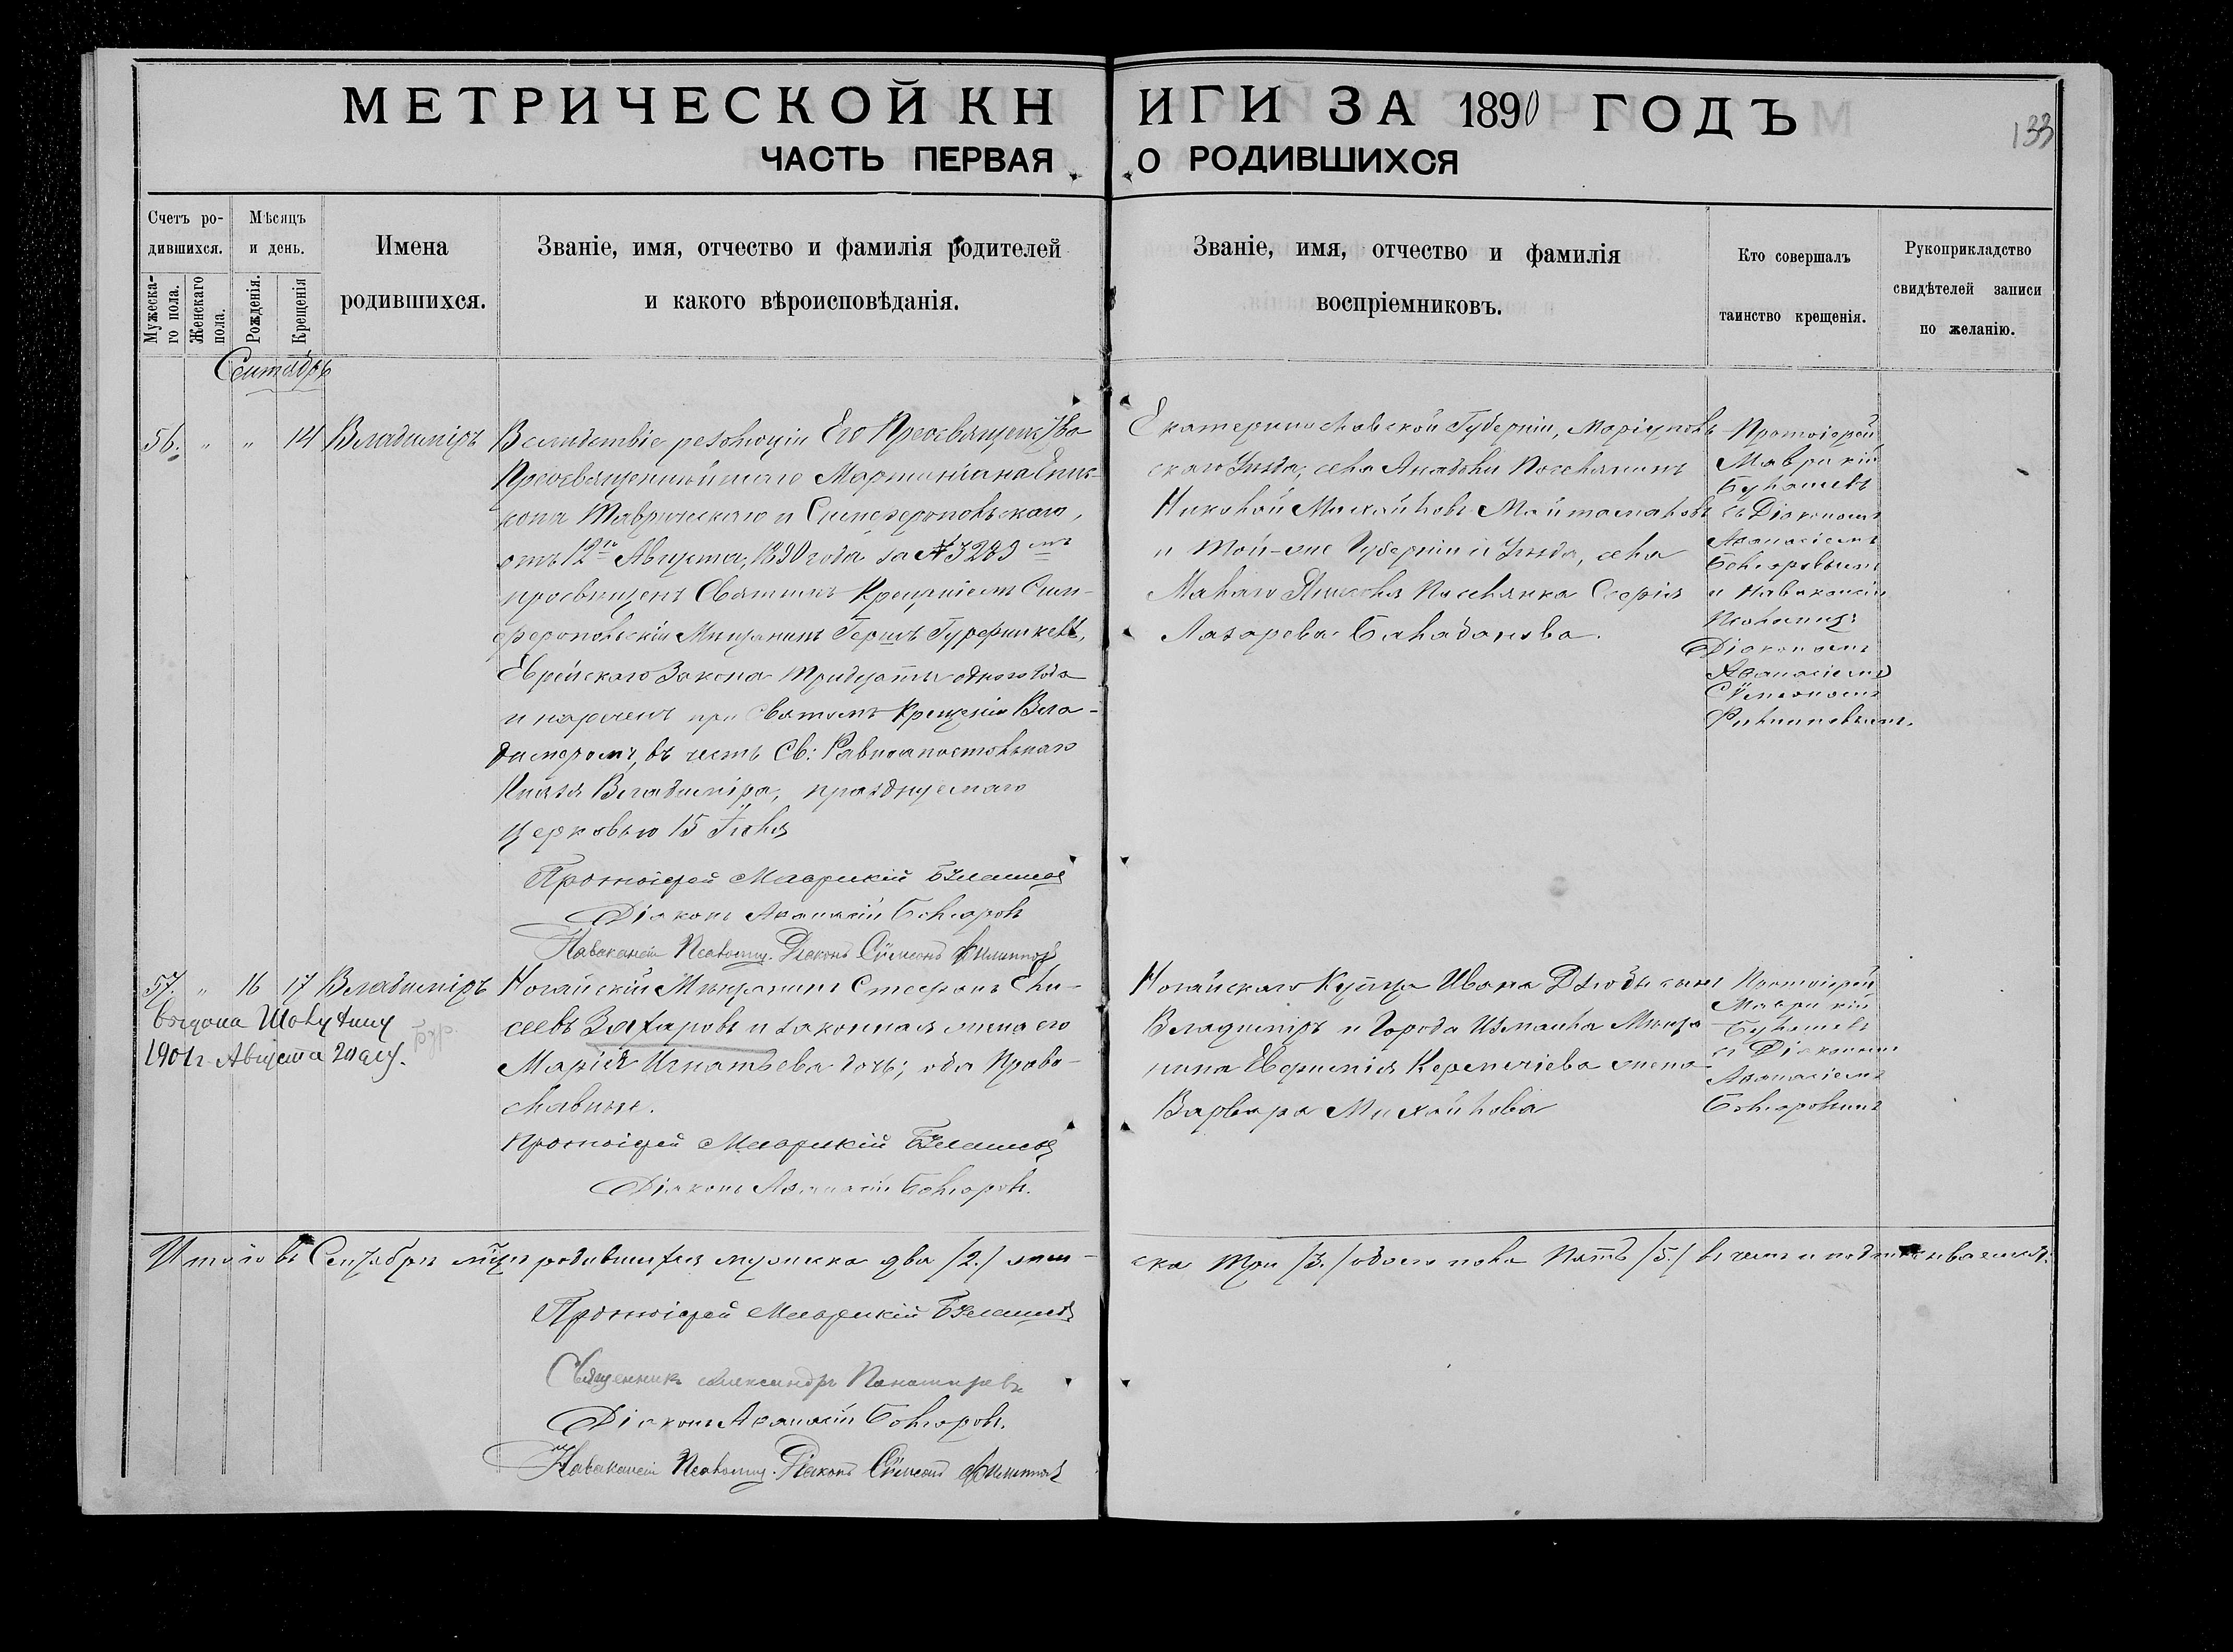 МЕТРИЧЕСКОЙ КНИГИ ЗА 1890 ГОДЪ
133
ЧАСТЬ ПЕРВАЯ О РОДИВШИХСЯ
Счетъ ро-
дившихся.
Мужеска-
го пола.
Женскаго
пола.
Мѣсяцъ
и день.
Рожденія.
Крещенія
Имена
родившихся.
Званіе, имя, отчество и фамилія родителей
и какого вѣроисповѣданія.
Званіе, имя, отчество и фамилія
воспріемниковъ.
Кто совершалъ
таинство крещенія.
Рукоприкладство
свидѣтелей записи
по желанію.
Сентябрь
56. " " 14 Владиміръ
Вслѣдствіе резолюціи Его Преосвященства
Преосвященнѣйшаго Мартиніана Епис-
копа Таврическаго и Симферопольскаго,
отъ 12го Августа, 1890 года за № 3283
просвѣщенъ Святымъ Крещеніемъ Сим-
феропольскій Мѣщанинъ Гершъ
Еврейскаго Закона тридцати одного года
и нареченъ при Святомъ Крещеніи Вла-
диміромъ, въ честь Св: Равноапостольнаго
Князя Владиміра, празднуемаго
Церковью 15 Іюля
Протоіерей Маврикій
Діаконъ Аѳанасій
Псаломщ. Діаконъ Сѵмеонъ Филипповъ
Екатеринославской Губерніи, Маріуполь-
скаго Уѣзда, села Поселянинъ
Николай Михайловъ
и той-же Губерніи и Уѣзда, села
Малаго Янисоля Поселянка Софія
Лазарева
Протоіерей
Маврикій
съ Діакономъ
Аѳанасіемъ
и
Псаломщ:
Діакономъ
Сѵмеономъ
Филипповымъ.
57. " 16 17 Владиміръ
выдана
1901г. Августа 20
Ногайскій Мѣщанинъ Стефанъ Ели-
сеевъ Захаровъ и законная жена его
Марія Игнатьева дочь; оба Право-
славные.
Протоіерей Маврикій
Діаконъ Аѳанасій
Ногайскаго Купца Ивана сынъ
Владиміръ и Города Измаила Мѣща
нина жена
Варвара Михайлова
Протоіерей
Маврикій
съ Діакономъ
Аѳанасіемъ
Итого въ Сентябрѣ мцѣ родившихся мужска два /2./ жен-
ска три /3./ обоего пола Пять /5./ въ чемъ и подписываемся:
Протоіерей Маврикій
Священникъ Александръ
Діаконъ Аѳанасій
Псаломщ. Діаконъ Сѵмеонъ Филипповъ